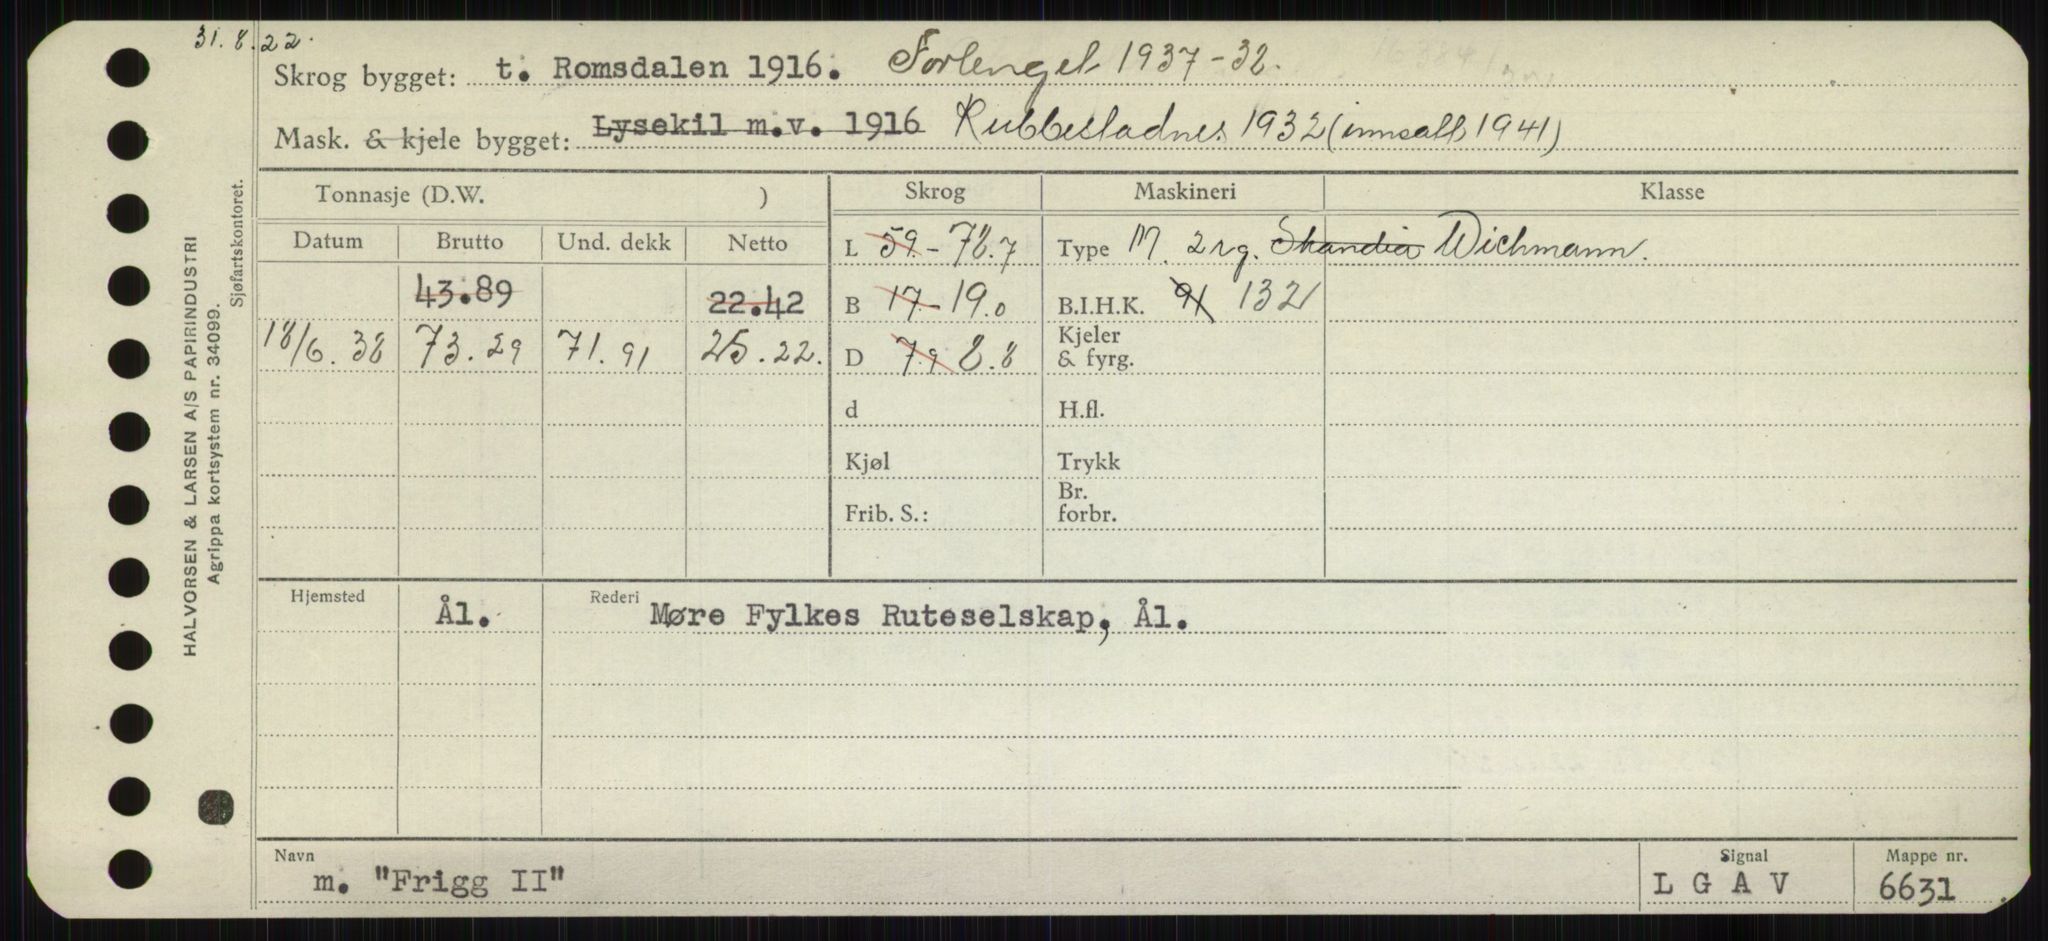 31.8.22.
Skrog bygget: t. Romsdalen 1916. Forlenget 1937-38.
Mask. & kjele bygget: Lysekil m.v. 1916 Rubbestadnes 1932 (innsatt 1941)
Tonnasje (D.W. ) Skrog Maskineri Klasse
Datum Brutto Und. dekk Netto L 59.- 78.7 Type M. 2 syl. Skandia Wichmann.
43.89 22.42 B 17- 19.0 B.I.H.K. 91 132
18/6.38 73.29 71.91 25.22. D 7.9 8.8 Kjeler & fyrg.
d H.fl.
Kjøl Trykk
Frib. S.: Br. forbr.
Hjemsted Ål. Rederi Møre Fylkes Ruteselskap, Ål.
Navn Signal Mappe nr.
m. "Frigg II" L G A V 6631
HALVORSEN & LARSEN A/S PAPIRINDUSTRI
Agrippa kortsystem nr. 34099.
Sjøfartskontoret.